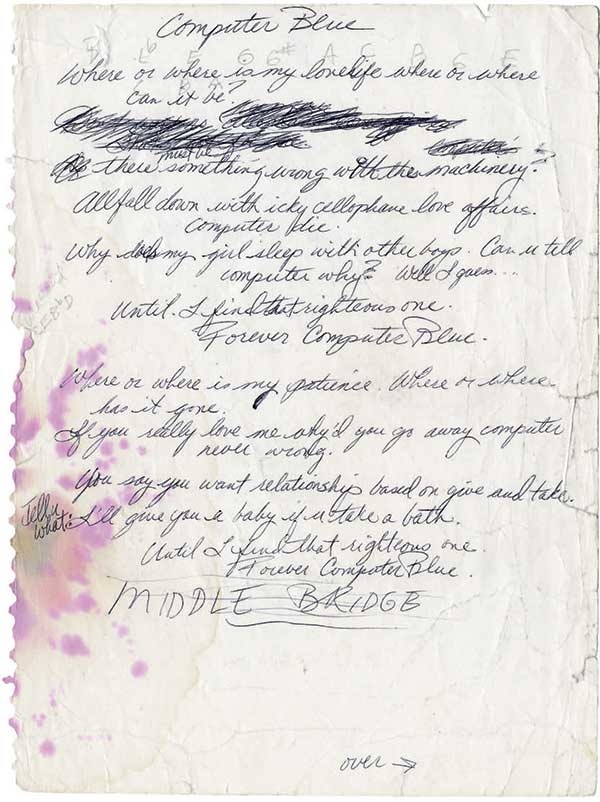 Computer Blue
Where or where is my lovelife where or where
can it be?
there must be something wrong with the machinery?
All fall down with icky cellophane love affairs.
Computer die.
Why does my girl sleep with other boys. Can u tell
computer why? Well I guess...
Until I find that righteous one.
Forever Computer Blue.
Where or where is my patience. Where or where
has it gone.
If you really love me why'd you go away computer
never wrong.
You say you want relationship based on give and take.
Tell u what: I'll give you a baby if u take a bath.
Until I find that righteous one.
Forever Computer Blue.
MIDDLE BRIDGE
over →